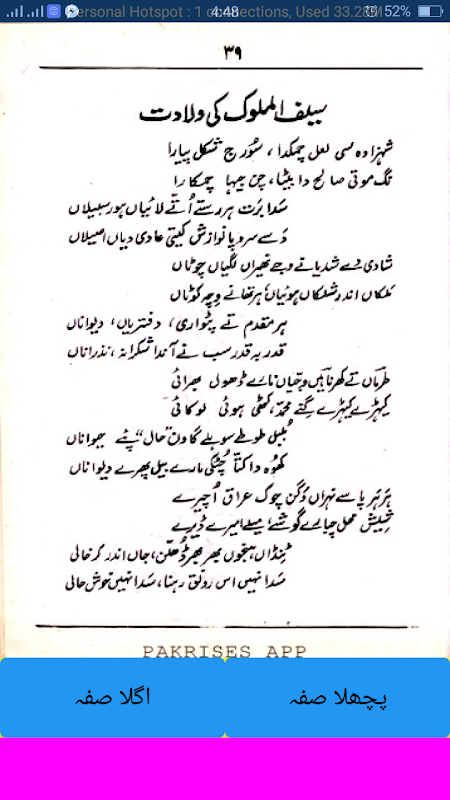 Personal Hotspot : 1 connections, Used 33.28M
4:48
52%
۳۹
سیف الملوک کی ولادت
شہزادہ سی لعل چمکدا، سورج شکل پیارا
نگ موتی صالح دا بیٹا، چن جیہا چمکارا
سدا برت ہر رستے اُتے لائیاں ہور سبیلاں
دسے سروپا نوازش کیتی عادی دیاں اصیلاں
شادی دے شدیانے وجے تھیراں لگیاں چوٹاں
ملکاں اندر شلکاں ہوئیاں ہر تھانے وچہ کوٹاں
ہر مقدم تے پٹواری، دفتریاں، دیواناں
قدر بہ قدر سب نے آندا شکرانہ، نذراناں
طرماں تے کھرنائیں وجیاں مارے ڈھول بھرائی
کیہڑے کیہڑے گئے محمد، کٹھی ہوئی لوکائی
بلبل طوطے سوہلے گاون "حال" پئے جیواناں
کھوہ دا کتا چٹکی مارے بیل پھرے دیواناں
ہر ہر پاسے نہراں وگن چوک عراق اُچیرے
شیش محل چبارے گوشے بیٹھے امیرے ڈیرے
ٹنڈاں ہنجوں بھر بھر ڈھلن، جاں اندر کر خالی
سدا نہیں اس رونق رہنا، سدا نہیں خوش حالی
PAKRISES APP
پچھلا صفہ
اگلا صفہ